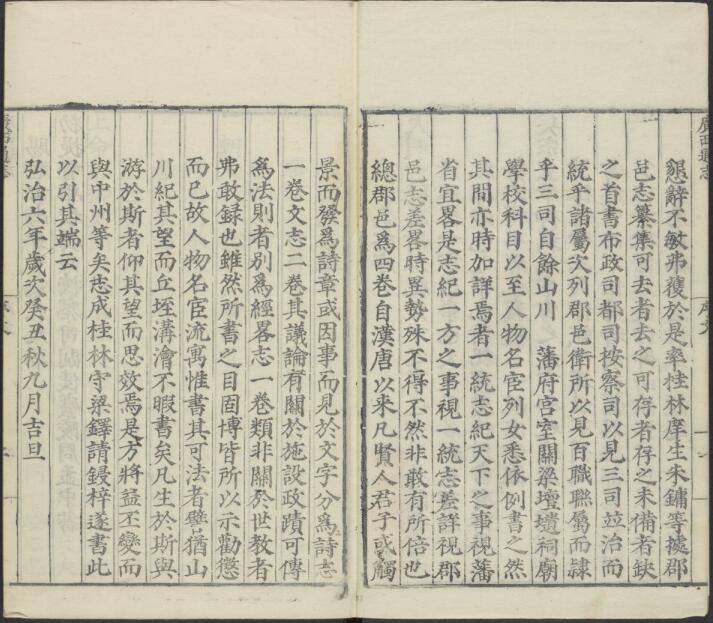 廣西通志
懇辭不敏弗獲於是率桂林庠生朱鏞等據郡
邑志纂集可去者去之可存者存之未備者缺
之首書布政司都司按察司以見三司竝治而
統乎諸屬次列郡邑衛所以見百職聮屬而隸
乎三司自餘山川 藩府宫室關梁壇壝祠廟
學校科目以至人物名宦列女悉依例書之然
其間亦時加詳焉者一統志紀天下之事視藩
省宜畧是志紀一方之事視一統志差詳視郡
邑志差畧時異勢殊不得不然非敢有所倍也
總郡邑爲四卷自漢唐以来凡賢人君子或觸
景而發爲詩章或因事而見於文字分爲詩志
一卷文志二卷其議論有關於施設政蹟可傳
爲法則者别爲經畧志一卷類非關於世教者
弗敢録也雖然所書之目固博皆所以示勸懲
而已故人物名宦流寓惟書其可法者譬猶山
川紀其望而丘垤溝澮不暇書矣凡生於斯與
游於斯者仰其望而思效焉是方將益丕變而
與中州等矣志成桂林守梁鐸請鋟梓遂書此
以引其端云
弘治六年歲次癸丑秋九月吉旦